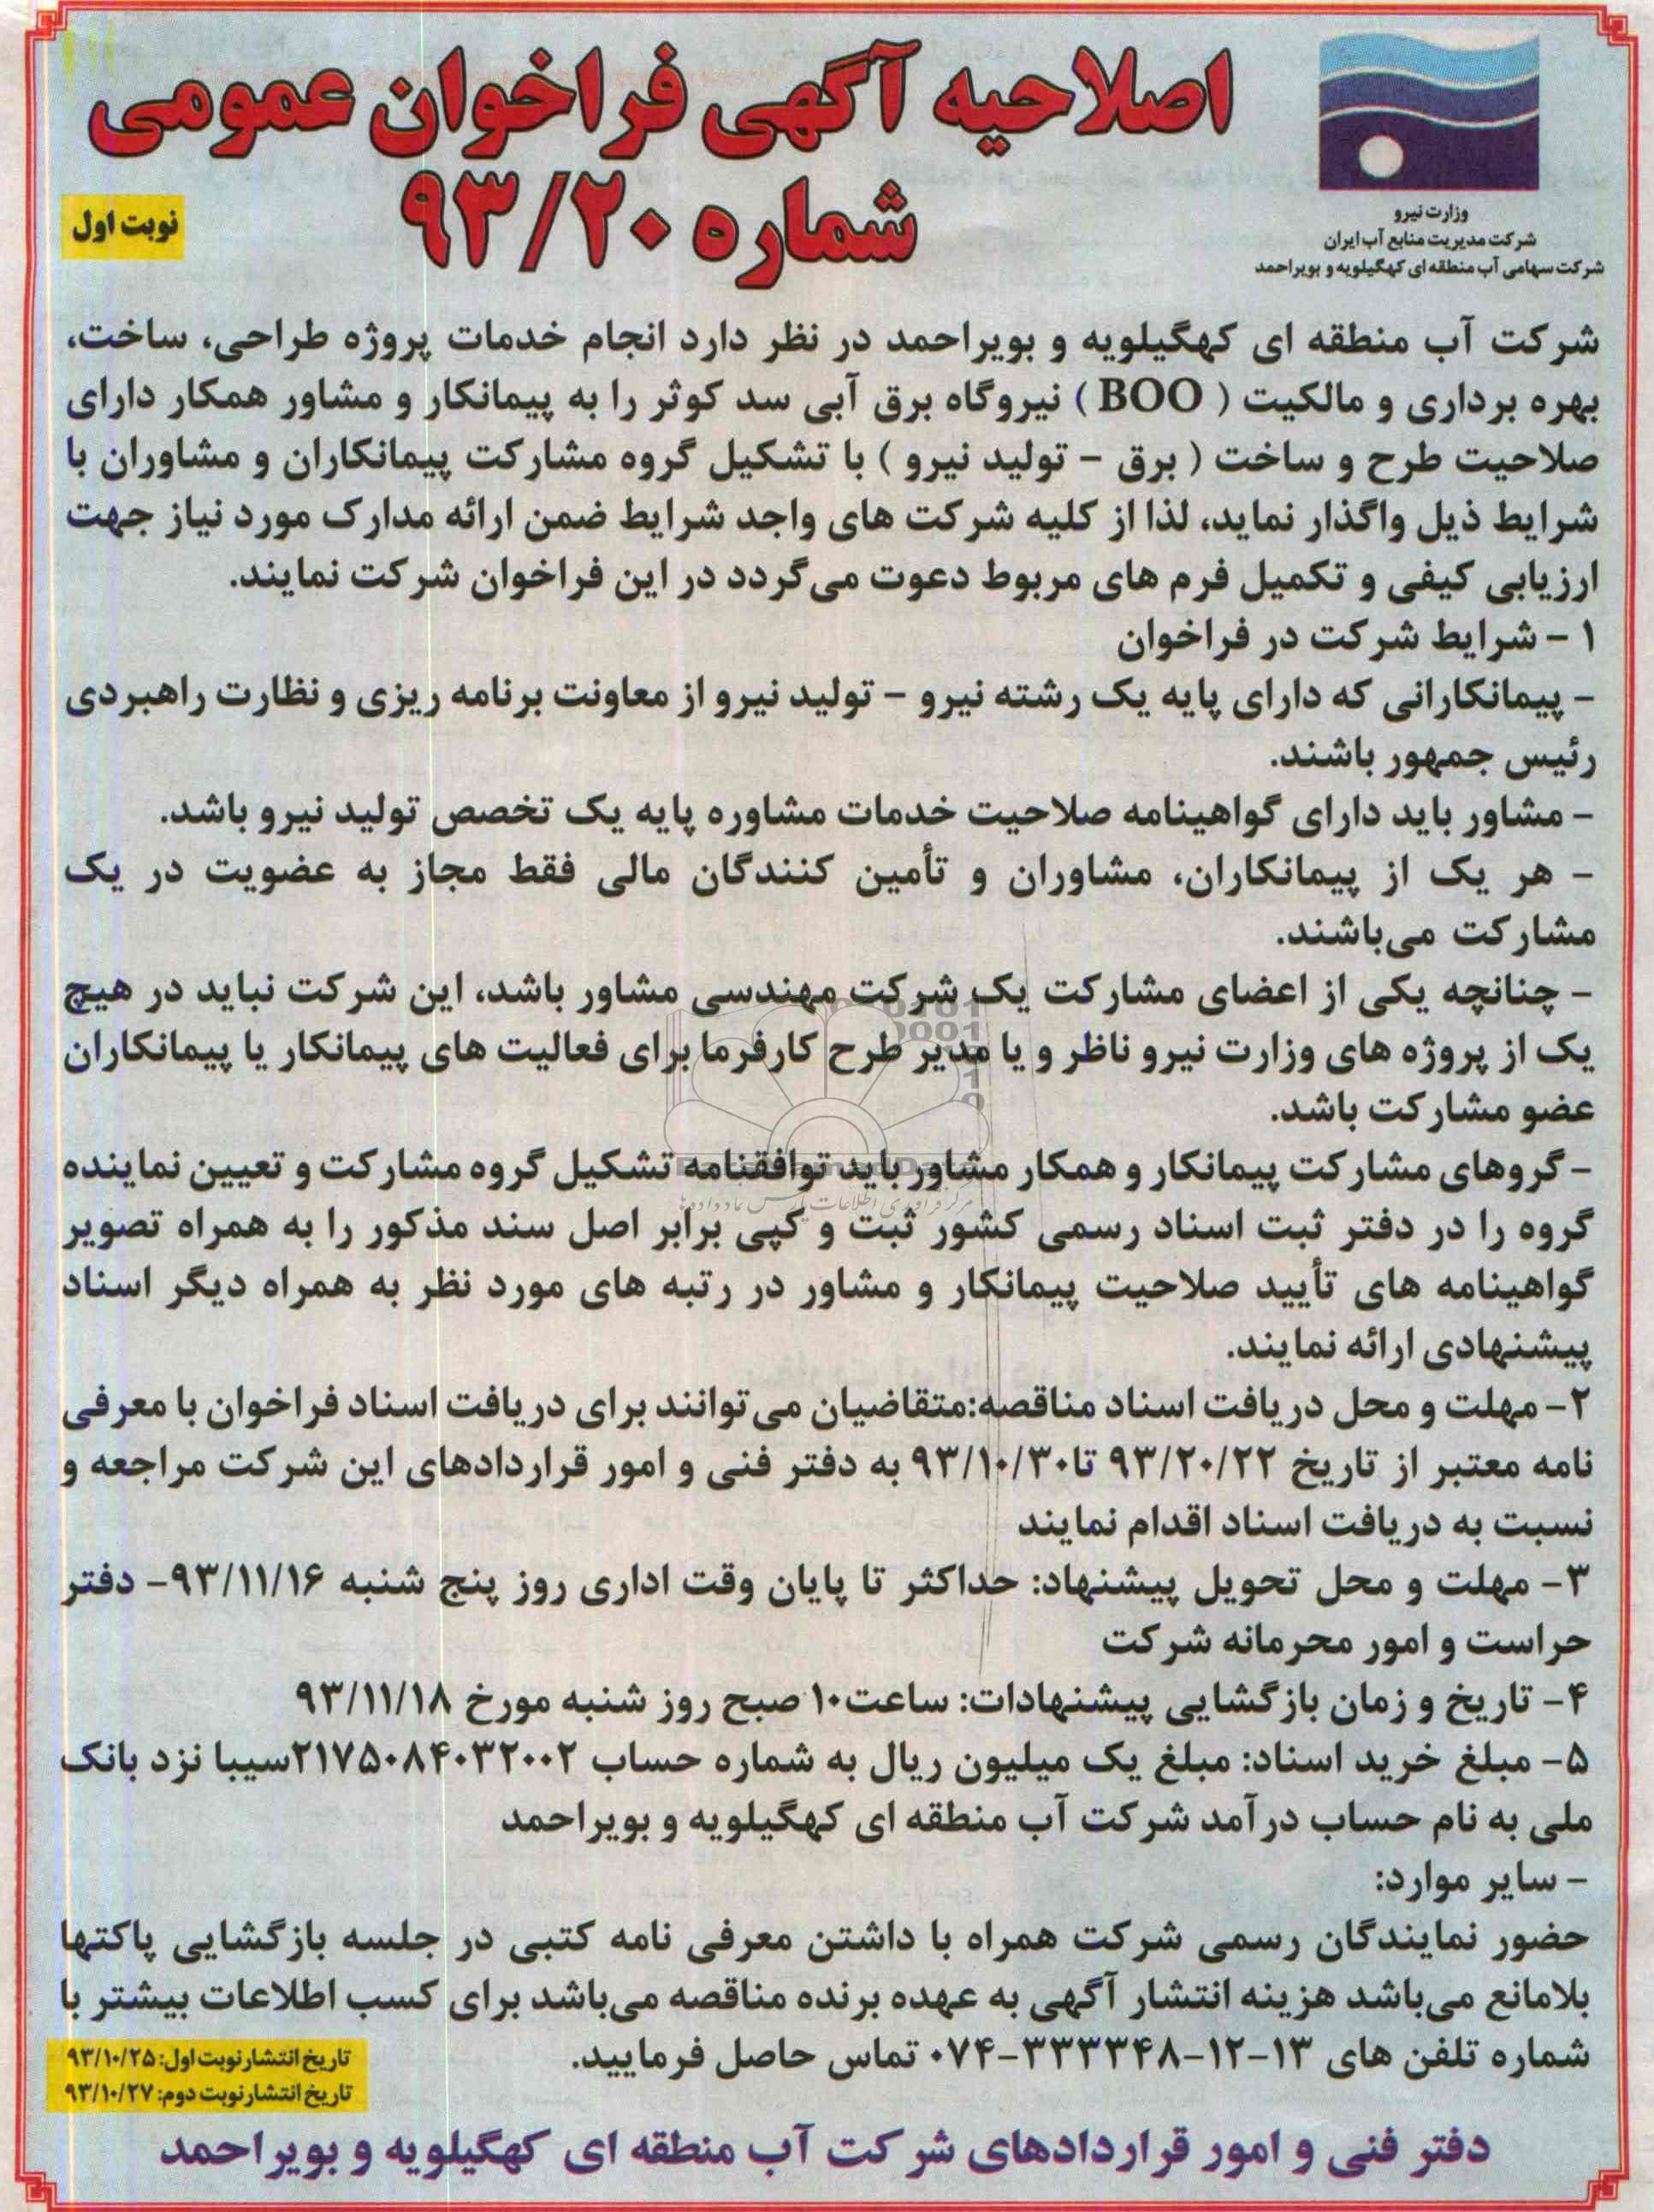 اصلاحیه آگهی فراخوان عمومی
شماره ۹۳/۲۰
نوبت اول
وزارت نیرو
شرکت مدیریت منابع آب ایران
شرکت سهامی آب منطقه ای کهگیلویه و بویراحمد
شرکت آب منطقه ای کهگیلویه و بویراحمد در نظر دارد انجام خدمات پروژه طراحی، ساخت،
بهره برداری و مالکیت ( BOO ) نیروگاه برق آبی سد کوثر را به پیمانکار و مشاور همکار دارای
صلاحیت طرح و ساخت ( برق - تولید نیرو ) با تشکیل گروه مشارکت پیمانکاران و مشاوران با
شرایط ذیل واگذار نماید، لذا از کلیه شرکت های واجد شرایط ضمن ارائه مدارک مورد نیاز جهت
ارزیابی کیفی و تکمیل فرم های مربوط دعوت می گردد در این فراخوان شرکت نمایند.
۱ - شرایط شرکت در فراخوان
- پیمانکارانی که دارای پایه یک رشته نیرو - تولید نیرو از معاونت برنامه ریزی و نظارت راهبردی
رئیس جمهور باشند.
- مشاور باید دارای گواهینامه صلاحیت خدمات مشاوره پایه یک تخصص تولید نیرو باشد.
- هر یک از پیمانکاران، مشاوران و تأمین کنندگان مالی فقط مجاز به عضویت در یک
مشارکت می‌باشند.
- چنانچه یکی از اعضای مشارکت یک شرکت مهندسی مشاور باشد، این شرکت نباید در هیچ
یک از پروژه های وزارت نیرو ناظر و یا مدیر طرح کارفرما برای فعالیت های پیمانکار یا پیمانکاران
عضو مشارکت باشد.
- گروهای مشارکت پیمانکار و همکار مشاور باید توافقنامه تشکیل گروه مشارکت و تعیین نماینده
گروه را در دفتر ثبت اسناد رسمی کشور ثبت و کپی برابر اصل سند مذکور را به همراه تصویر
گواهینامه های تأیید صلاحیت پیمانکار و مشاور در رتبه های مورد نظر به همراه دیگر اسناد
پیشنهادی ارائه نمایند.
۲- مهلت و محل دریافت اسناد مناقصه:متقاضیان می توانند برای دریافت اسناد فراخوان با معرفی
نامه معتبر از تاریخ ۹۳/۲۰/۲۲ تا۹۳/۱۰/۳۰ به دفتر فنی و امور قراردادهای این شرکت مراجعه و
نسبت به دریافت اسناد اقدام نمایند
۳- مهلت و محل تحویل پیشنهاد: حداکثر تا پایان وقت اداری روز پنج شنبه ۹۳/۱۱/۱۶- دفتر
حراست و امور محرمانه شرکت
۴- تاریخ و زمان بازگشایی پیشنهادات: ساعت۱۰ صبح روز شنبه مورخ ۹۳/۱۱/۱۸
۵- مبلغ خرید اسناد: مبلغ یک میلیون ریال به شماره حساب ۲۱۷۵۰۸۴۰۳۲۰۰۲سیبا نزد بانک
ملی به نام حساب درآمد شرکت آب منطقه ای کهگیلویه و بویراحمد
- سایر موارد:
حضور نمایندگان رسمی شرکت همراه با داشتن معرفی نامه کتبی در جلسه بازگشایی پاکتها
بلامانع می‌باشد هزینه انتشار آگهی به عهده برنده مناقصه می‌باشد برای کسب اطلاعات بیشتر با
شماره تلفن های ۱۳-۱۲-۳۳۳۳۴۸-۰۷۴ تماس حاصل فرمایید.
تاریخ انتشار نوبت اول: ۹۳/۱۰/۲۵
تاریخ انتشار نوبت دوم: ۹۳/۱۰/۲۷
دفتر فنی و امور قراردادهای شرکت آب منطقه ای کهگیلویه و بویراحمد